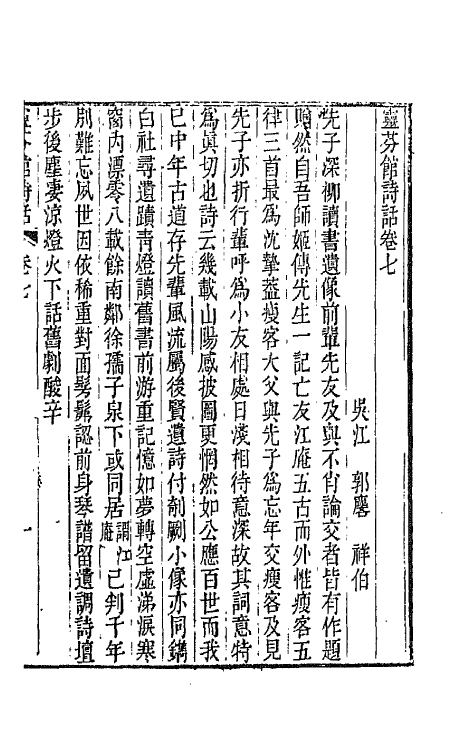 靈芬館詩話卷七
吳江　郭麐　祥伯
先子深柳讀書遺像前輩先友及與不肖論交者皆有作題
瞭然自吾師姬傳先生一記亡友江庵五古而外惟瘦客五
律三首最爲沈摯葢瘦客大父與先子爲忘年交瘦客及見
先子亦折行輩呼爲小友相處日淺相待意深故其詞意特
爲眞切也詩云幾載山陽感披圖更惘然如公應百世而我
已中年古道存先輩風流屬後賢遺詩付剞劂小像亦同鐫
白社尋遺蹟靑燈讀舊書前游重記憶如夢轉空虛涕淚寒
窗內漂零八載餘南鄰徐孺子泉下或同居謂江庵已判千年
別難忘夙世因依稀重對面髣髴認前身琴譜留遺調詩壇
步後塵凄涼燈火下話舊劇酸辛
靈芬館詩話　卷七　一